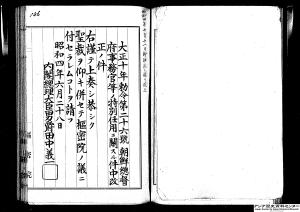 大正十年勅令第二十六號朝鮮總督
府事務官等ノ特別任用ニ關スル件中改
正ノ件
右謹テ上奏シ恭シク
聖裁ヲ仰キ併セテ樞密院ノ議ニ
付セラレムコトヲ請フ
昭和四年六月二十八日
內閣總理大臣男爵田中義一